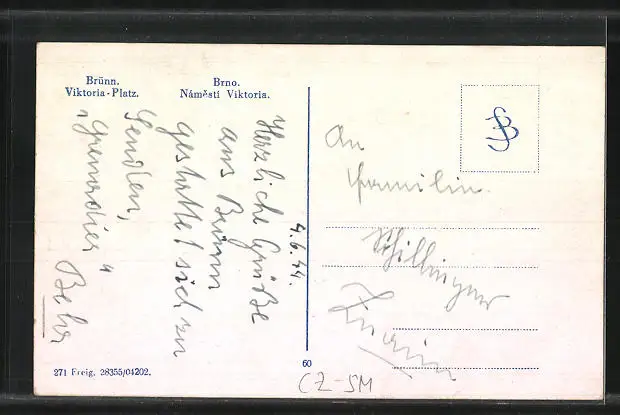 Brünn.
Viktoria-Platz.
Brno.
Náměstí Viktoria.
4.6.44.
Herzliche Grüße
aus Brünn
gestattet sich zu
Senden,
"Grenadier"
An
Familie
Schillinger
Znaim
60
271 Freig. 28355/04202.
CZ-JM